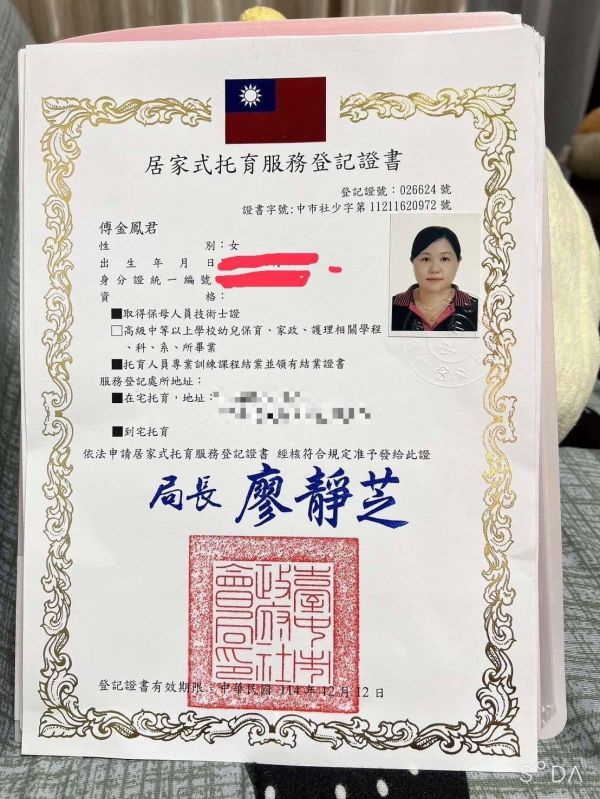 居家式托育服務登記證書
登記證號：026624 號
證書字號:中市社少字第 11211620972 號
傅金鳳君
性別：女
出生年月日
身分證統一編號
資格：
■取得保母人員技術士證
□高級中等以上學校幼兒保育、家政、護理相關學程
、科、系、所畢業
■托育人員專業訓練課程結業並領有結業證書
服務登記處所地址：
■在宅托育，地址：
■到宅托育
依法申請居家式托育服務登記證書 經核符合規定准予發給此證
局長 廖靜芝
臺中市政府社會局印
登記證書有效期限：中華民國 114 年 12 月 12 日
SODA